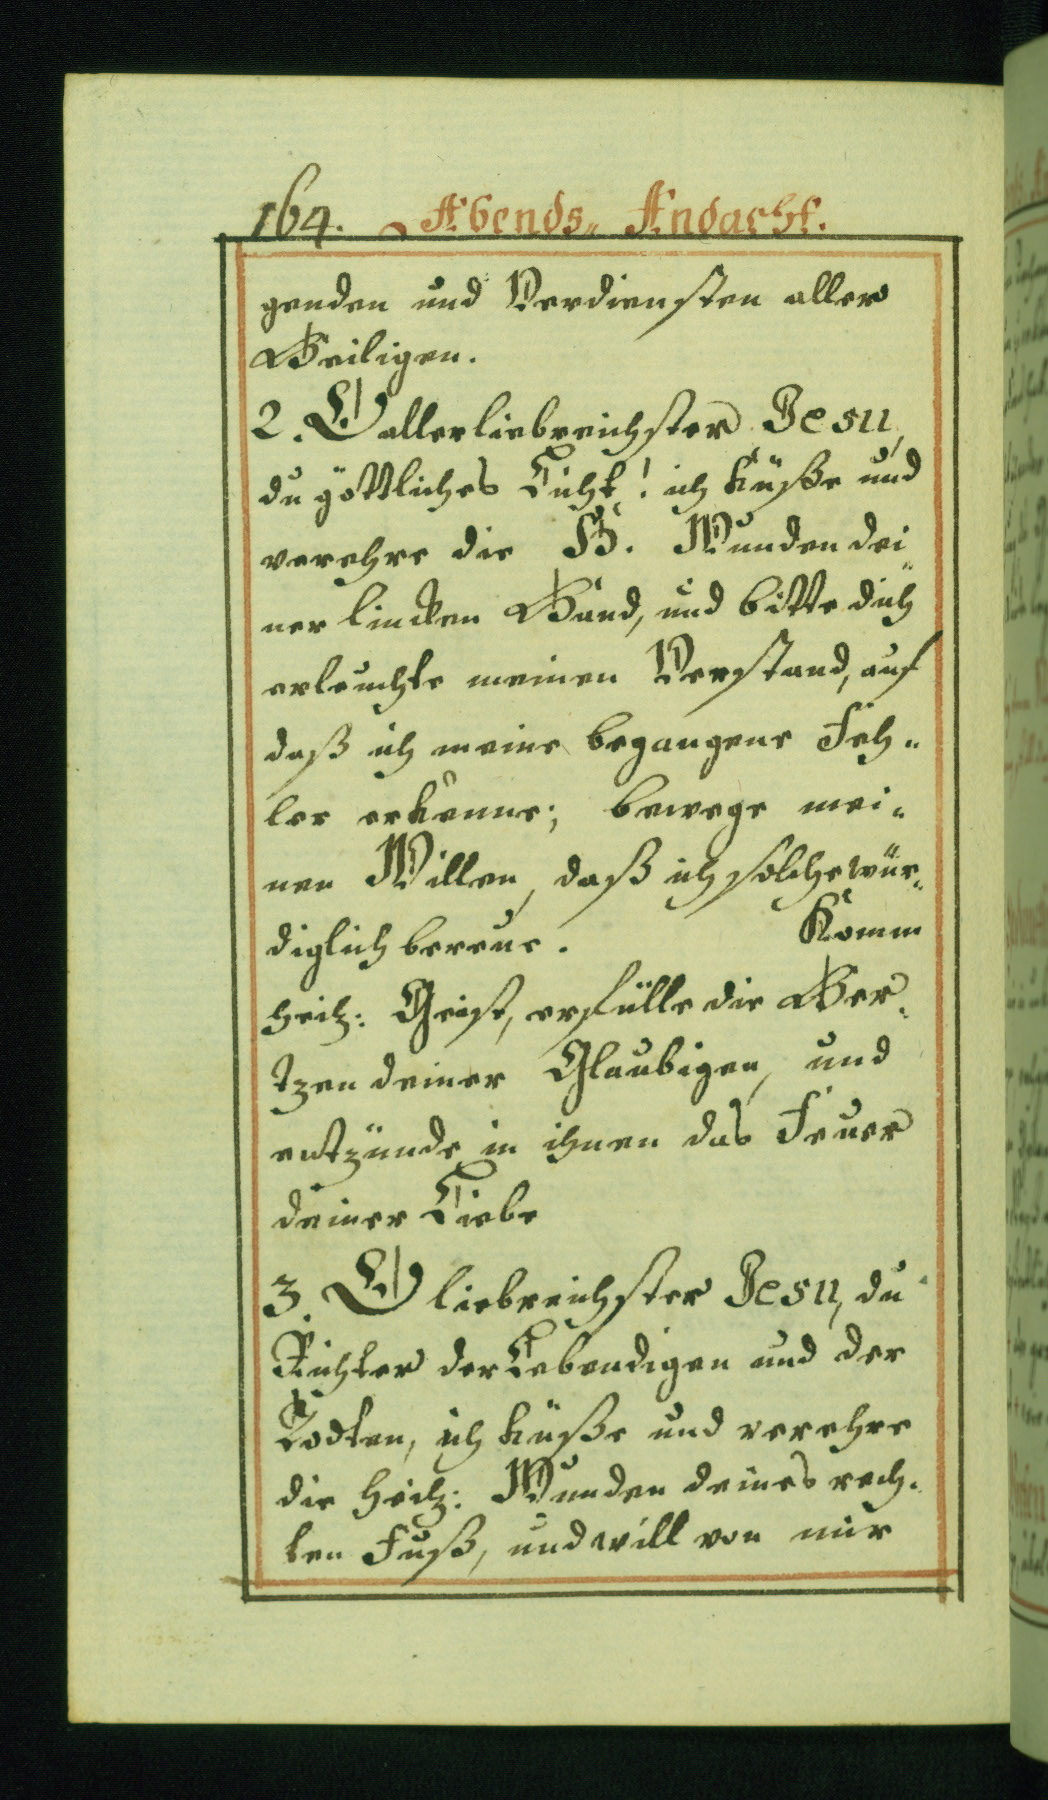 164. Abends„ Andacht.
genden und Verdiensten aller
Heiligen.
2. O allerliebreichster Jesu,
du göttliches Licht! ich küße und
verehre die H. Wunden dei„
ner lincken Hand, und bitte dich
erleuchte meinen Verstand, auf
daß ich meine begangene Feh„
ler erkenne; bewege mei„
nen Willen, daß ich solche wür„
diglich bereue. Komm
heilg: Geist, erfülle die Her„
tzen deiner Glaubigen, und
entzünde in ihnen das Feuer
deiner Liebe
3. O liebreichster Jesu, du
Richter der Lebendigen und der
Todten, ich küße und verehre
die heilg: Wunden deines rech„
ten Fuß, und will von mir